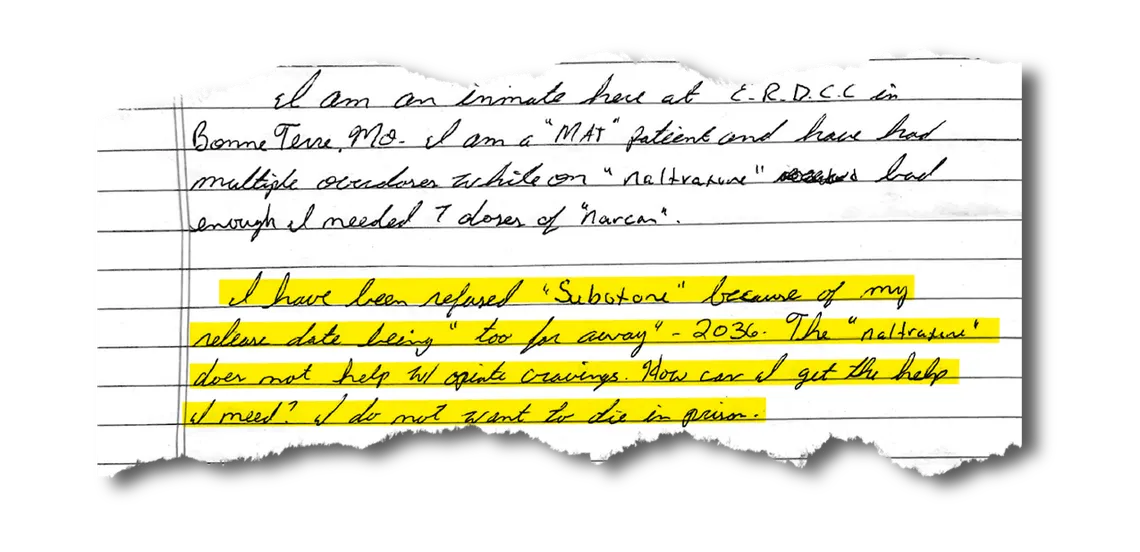 I am an inmate here at E.R.D.C.C in
Bonne Terre, MO. I am a "MAT" patient and have had
multiple overdoses while on "naltraxone" bad
enough I needed 7 doses of "narcan".
I have been refused "Suboxone" because of my
release date being "too far away" - 2036. The "naltraxone"
does not help w/ opiate cravings. How can I get the help
I need? I do not want to die in prison.